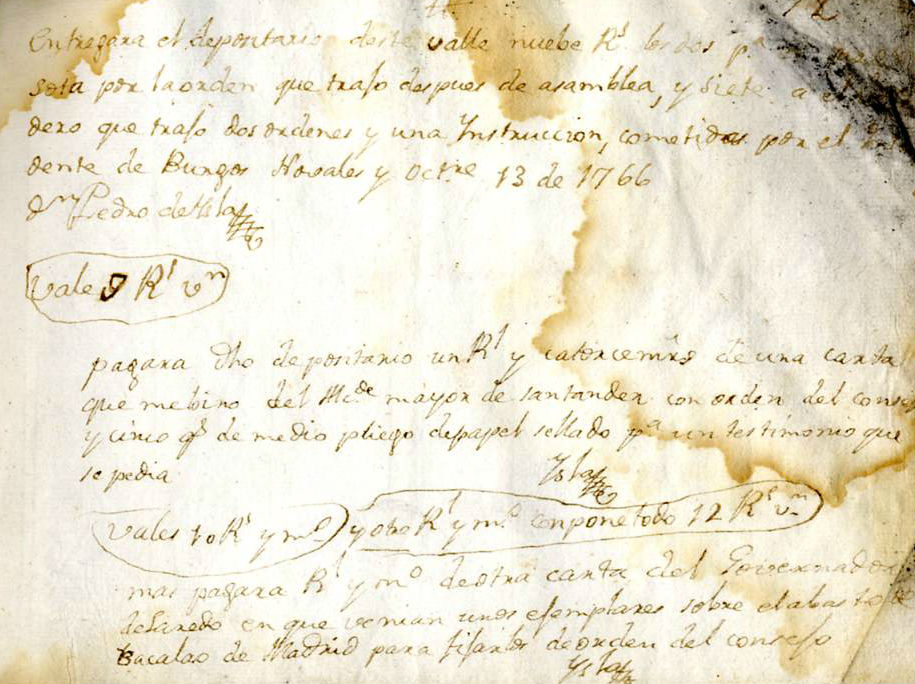 Entregara el depositario deste valle nuebe Rs los dos pa
sota por la orden que trajo despues de asamblea, y siete a el
dero que trajo dos ordenes y una Instruccion, cometidas por el
dente de Burgos Novales y Octre 13 de 1766
Dn Pedro de Isla
Vale 9 Rs vn
pagara dho depositario un Rl y catorce mrs de una carta
que me bino del Alcde mayor de santander con orden del conse
y cinco qs de medio pliego de papel sellado pa un testimonio que
se pedia
Ysla
Vales 10 Rs y mo y otro Rl y mo componetodo 12 Rs vn
mas pagara Rl y mo de otra carta del Governador
de Laredo en que venian unos ejemplares sobre el abasto de
Bacalao de Madrid para fijarlos de orden del consejo
Ysla